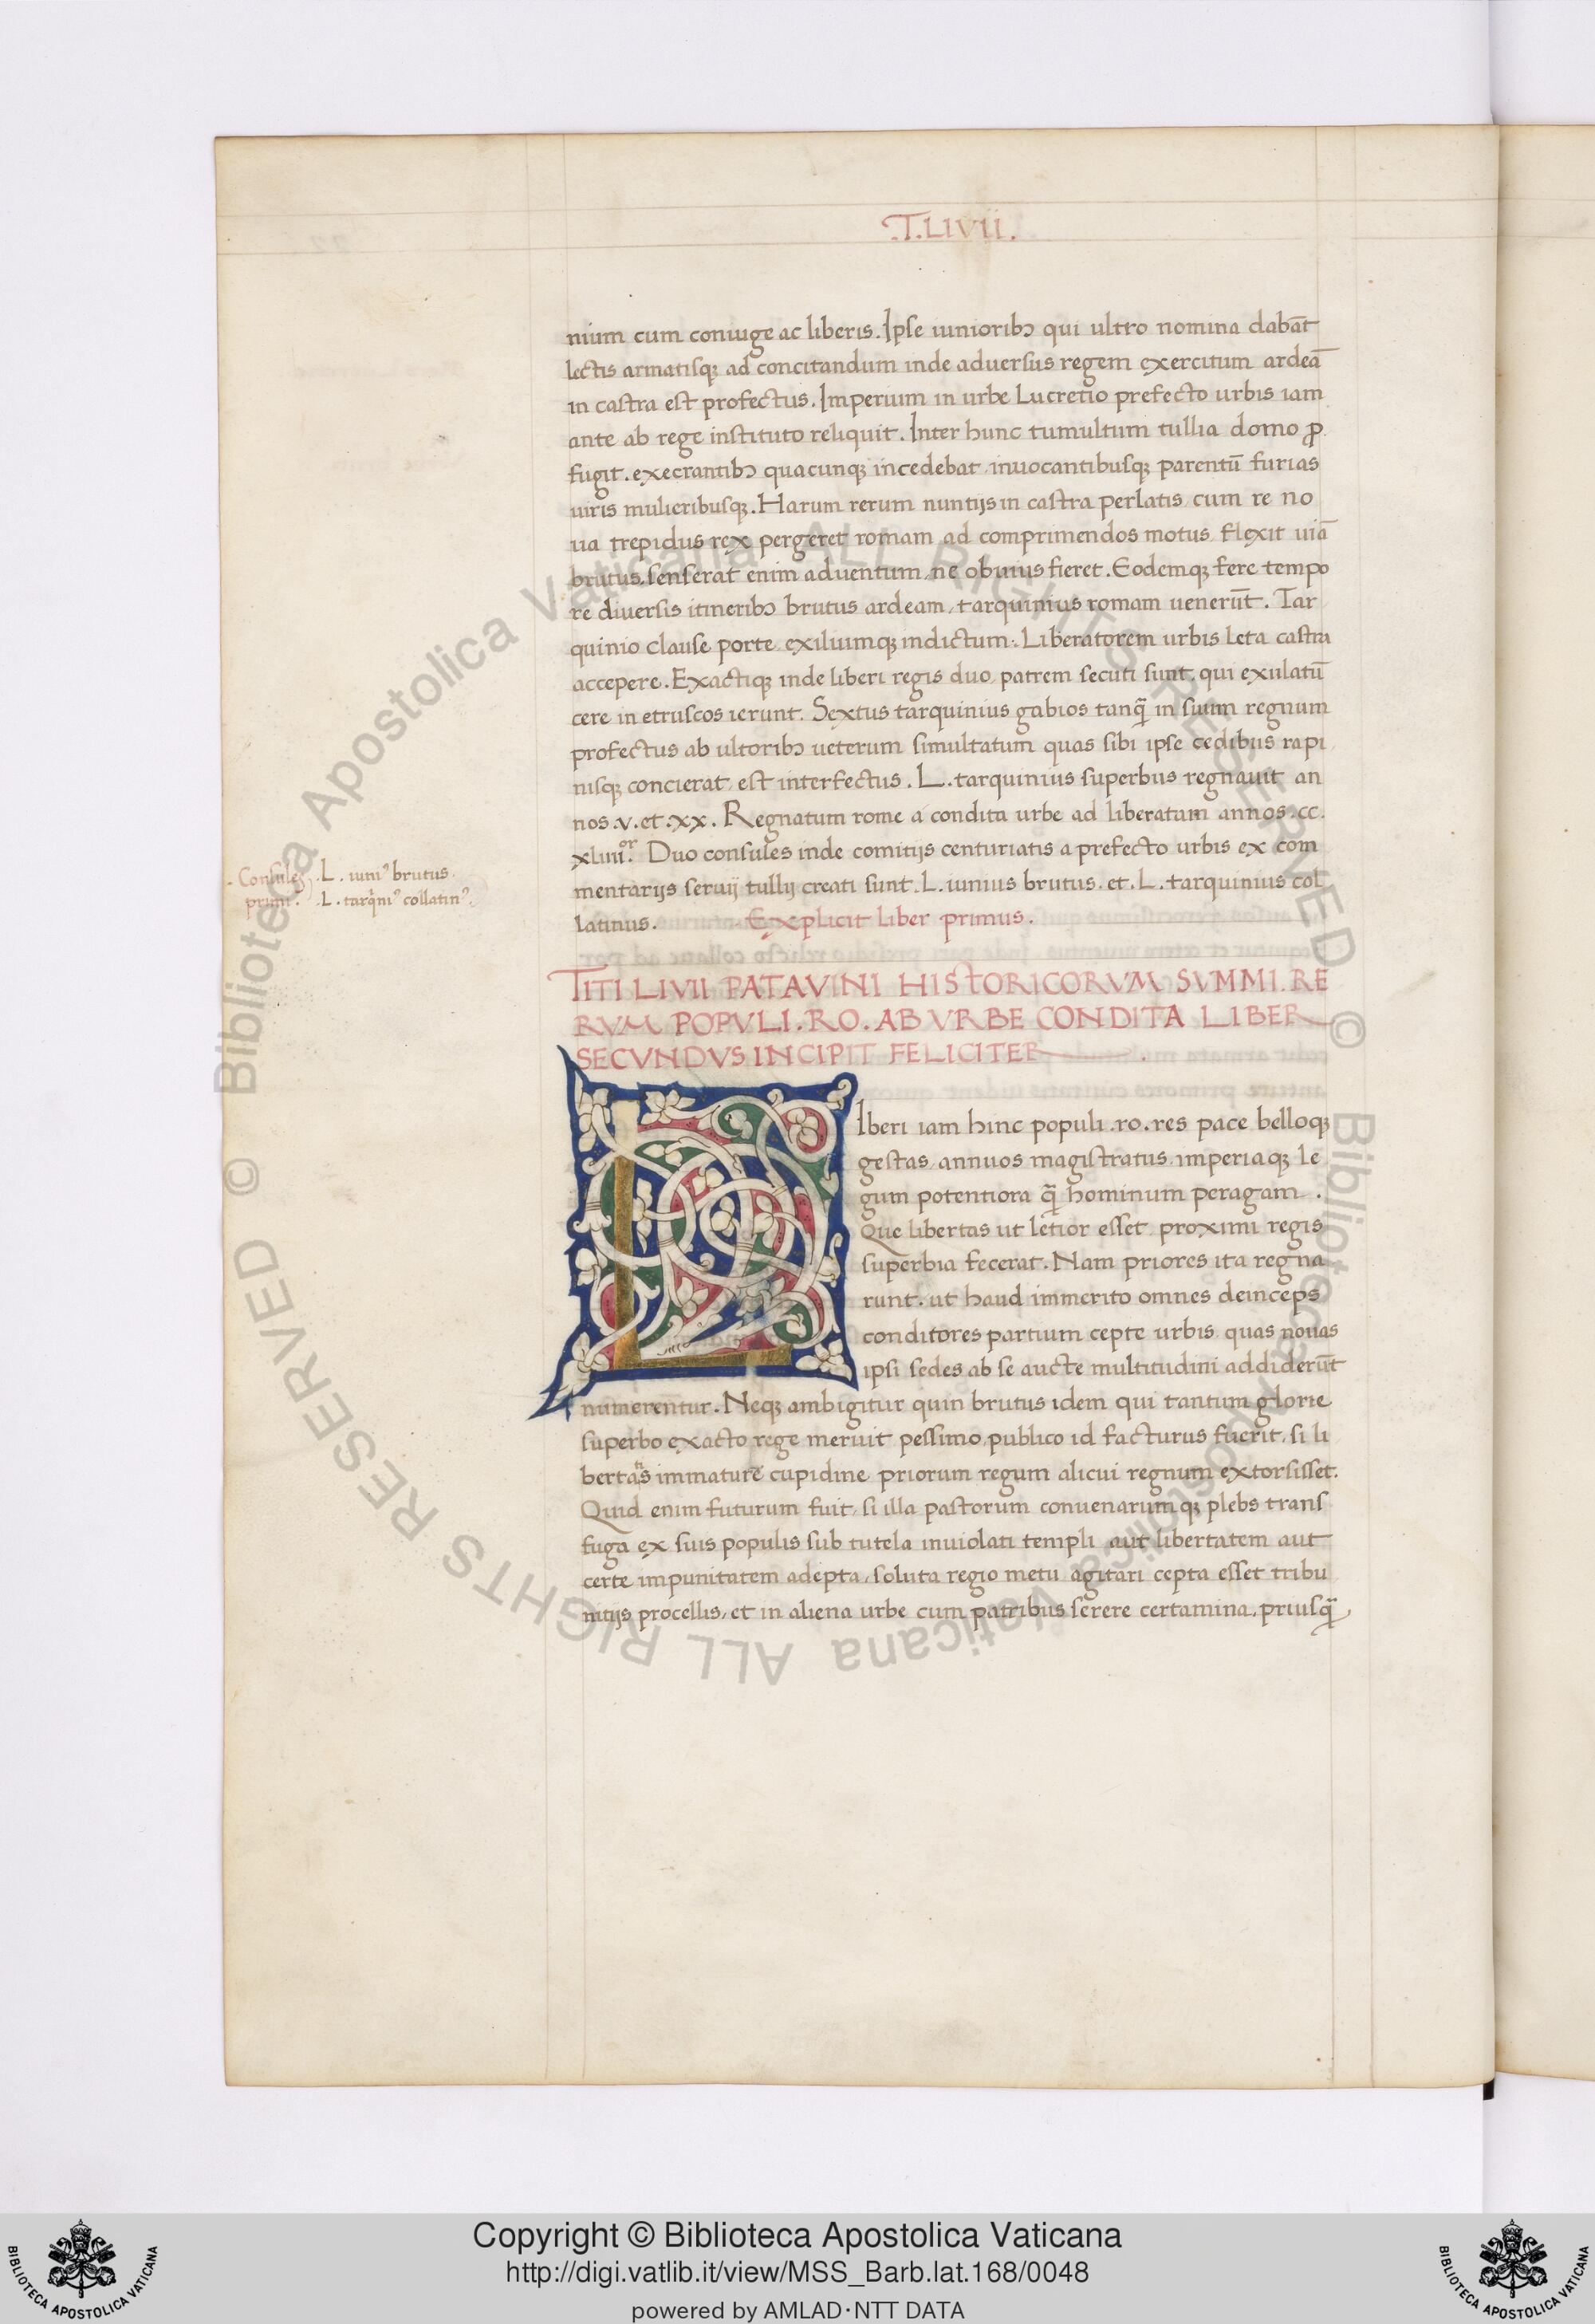 .T.LIVII.
nium cum coniuge ac liberis. Ipse iunioribꝫ qui ultro nomina dabāt
lectis armatisqꝫ ad concitandum inde aduersus regem exercitum ardeā
in castra est profectus. Imperium in urbe Lucretio prefecto urbis iam
ante ab rege instituto reliquit. Inter hunc tumultum tullia domo ꝓ
fugit. execrantibꝫ quacunqꝫ incedebat inuocantibusqꝫ parentū furias
uiris mulieribusqꝫ. Harum rerum nuntijs in castra perlatis cum re no
ua trepidus rex pergeret romam ad comprimendos motus flexit uiā
brutus. senserat enim aduentum, ne obuius fieret. Eodemqꝫ fere tempo
re diuersis itineribꝫ brutus ardeam, tarquinius romam uenerūt. Tar
quinio clause porte exiliumqꝫ indictum. Liberatorem urbis leta castra
accepere. Exactiqꝫ inde liberi regis duo patrem secuti sunt. qui exulatū
cere in etruscos ierunt. Sextus tarquinius gabios tanq̄ in suum regnum
profectus ab ultoribꝫ ueterum simultatum quas sibi ipse cedibus rapi
nisqꝫ concierat est interfectus. L. tarquinius superbus regnauit an
nos .v. et .xx. Regnatum rome a condita urbe ad liberatam annos .cc.
xliiii.ᵒʳ Duo consules inde comitijs centuriatis a prefecto urbis ex com
mentarijs seruij tullij creati sunt. L. iunius brutus. et. L. tarquinius col
latinus. Explicit liber primus.
Consules primi. .L. iuniꝰ brutus.
.L. tarq̄niꝰ collatinꝰ.
TITI LIVII PATAVINI HISTORICORVM SVMMI. RE
RVM POPVLI. RO. AB VRBE CONDITA LIBER
SECVNDVS INCIPIT FELICITER
LIberi iam hinc populi .ro. res pace belloqꝫ
gestas annuos magistratus imperiaqꝫ le
gum potentiora q̄ hominum peragam.
Que libertas ut letior esset proximi regis
superbia fecerat. Nam priores ita regna
runt. ut haud immerito omnes deinceps
conditores partium cepte urbis quas nouas
ipsi sedes ab se aucte multitudini addiderūt
numerentur. Neqꝫ ambigitur quin brutus idem qui tantum glorie
superbo exacto rege meruit pessimo publico id facturus fuerit. si li
bertatis immature cupidine priorum regum alicui regnum extorsisset.
Quid enim futurum fuit, si illa pastorum conuenarumqꝫ plebs trans
fuga ex suis populis sub tutela inuiolati templi aut libertatem aut
certe impunitatem adepta, soluta regio metu agitari cepta esset tribu
nitijs procellis, et in aliena urbe cum patribus serere certamina. priusq̄
© Biblioteca Apostolica Vaticana ALL RIGHTS RESERVED © Biblioteca Apostolica Vaticana ALL RIGHTS RESERVED
Copyright © Biblioteca Apostolica Vaticana
http://digi.vatlib.it/view/MSS_Barb.lat.168/0048
powered by AMLAD·NTT DATA
BIBLIOTECA APOSTOLICA VATICANA
BIBLIOTECA APOSTOLICA VATICANA